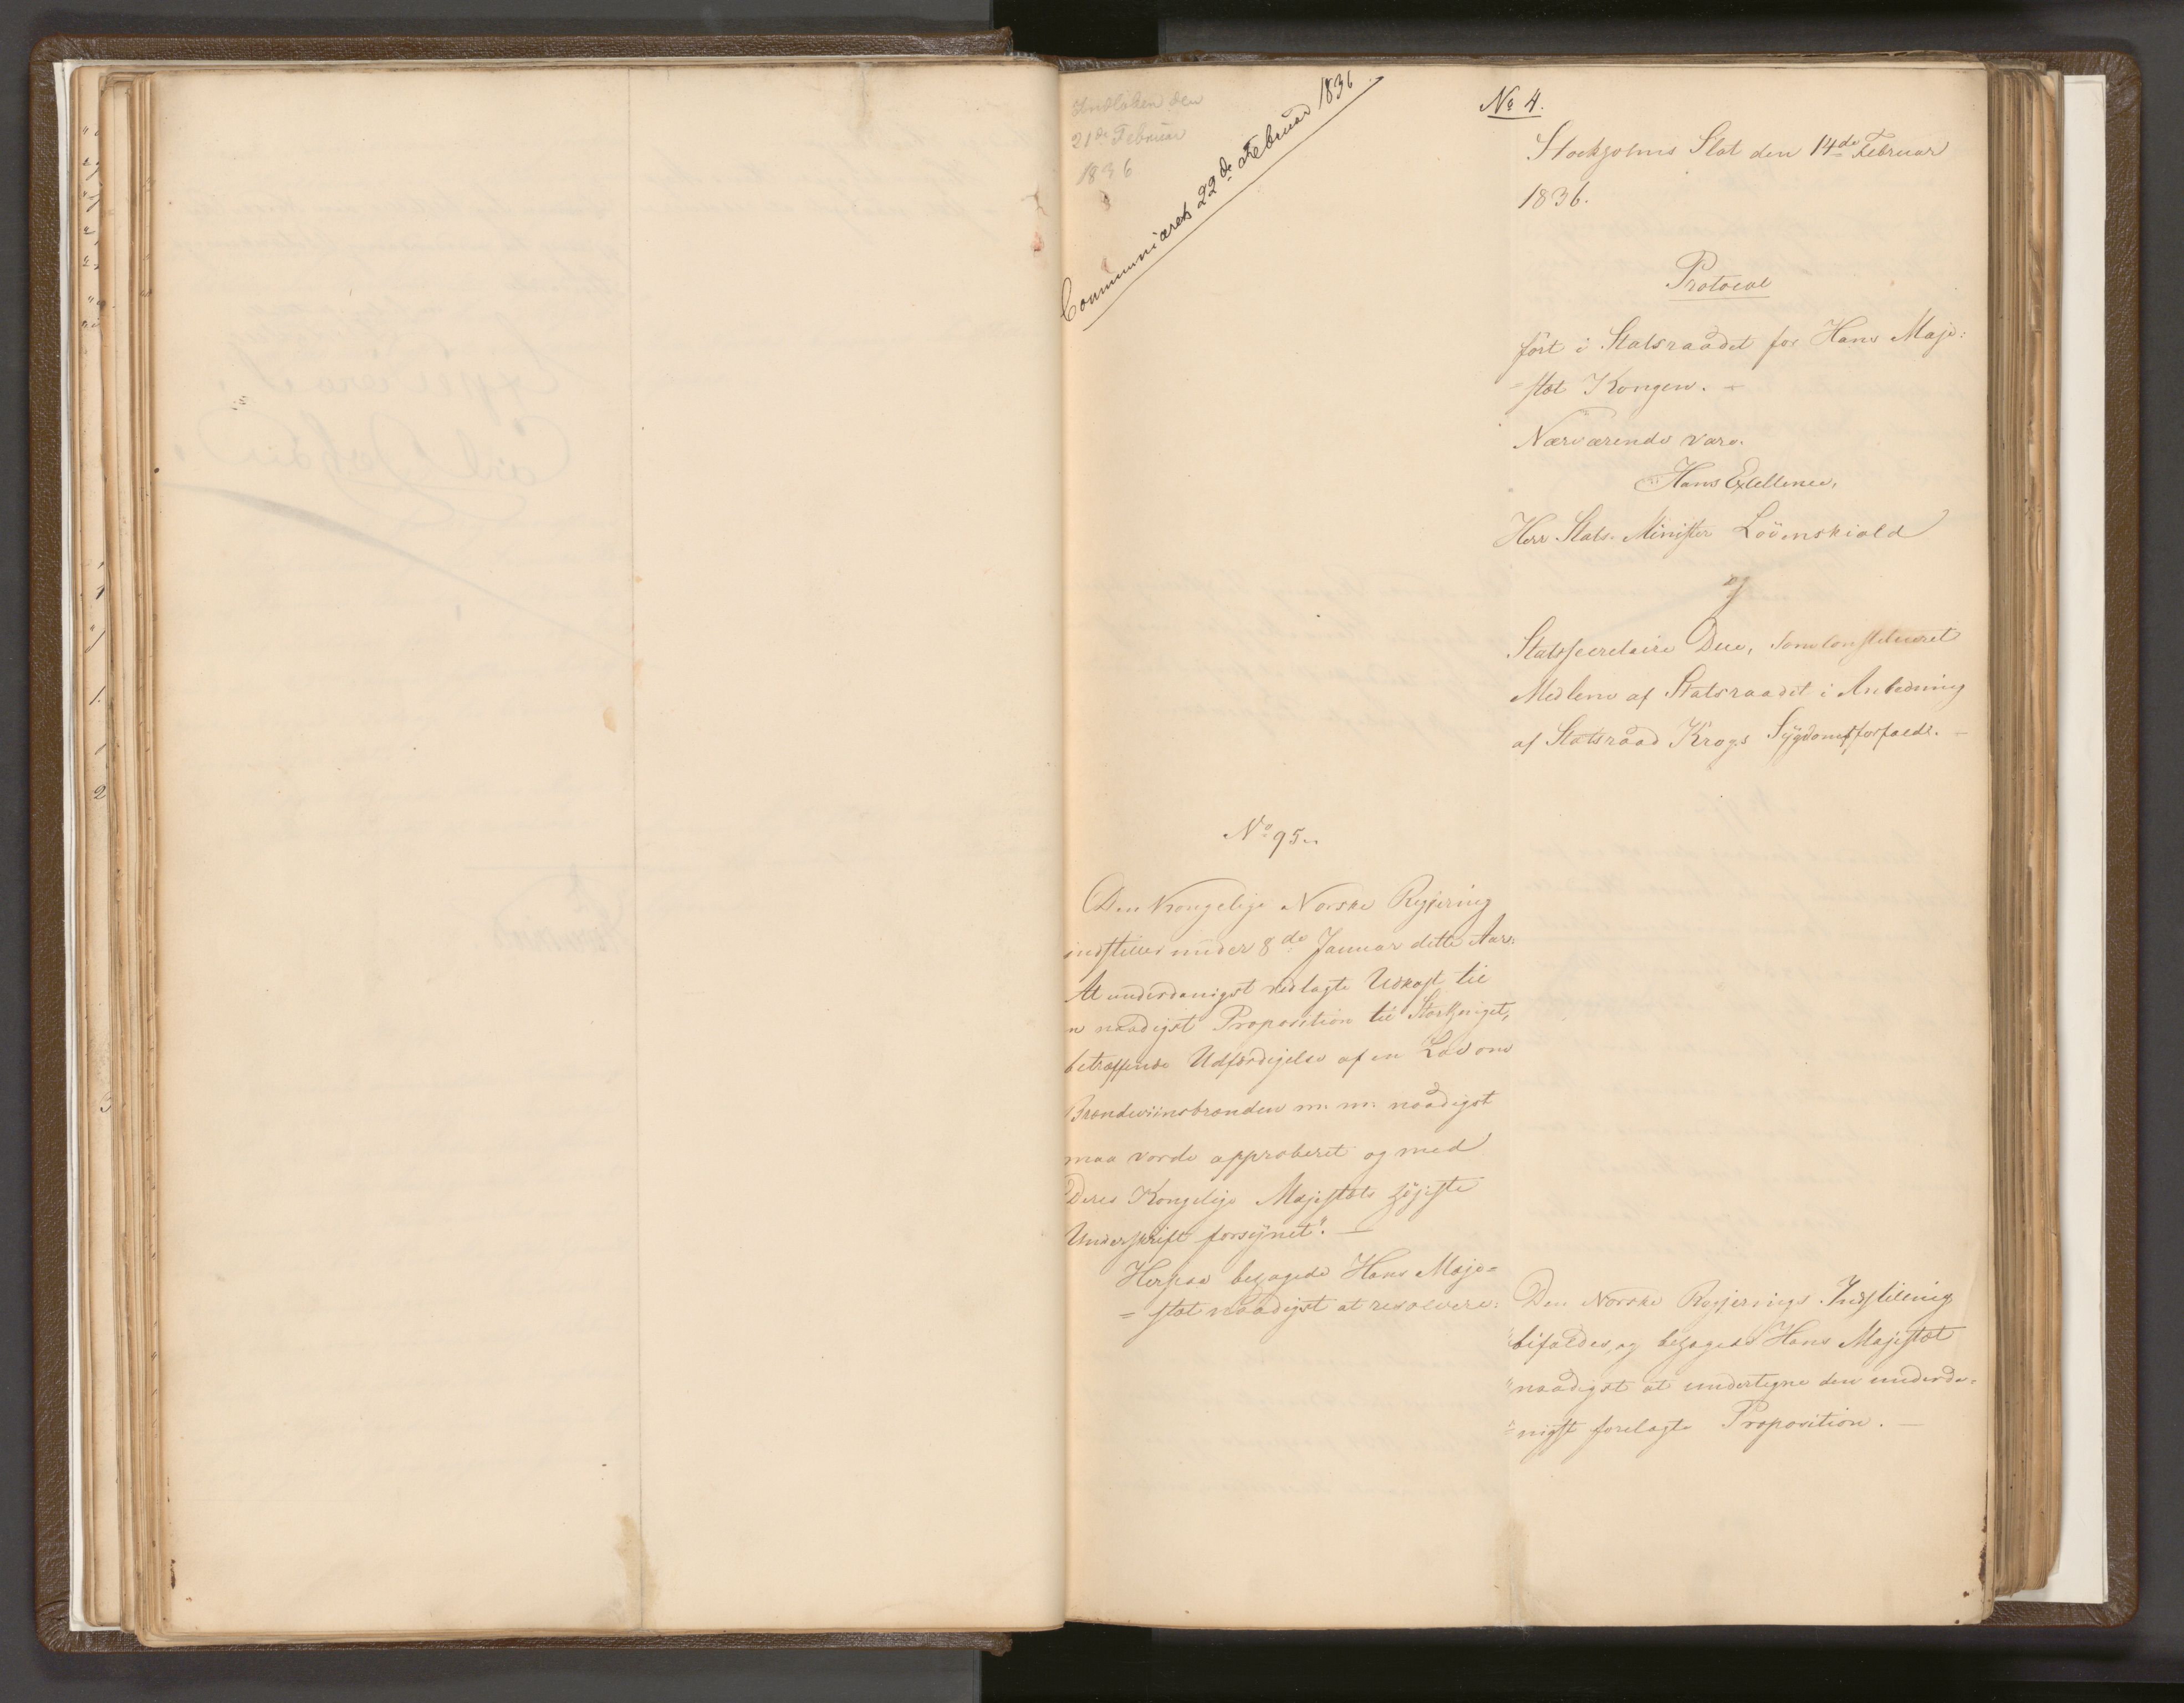 Indkoken den
21de Februar
1836
Communiceret 22de Februar 1836
No 4.
Stockholms Slot den 14de Februar
1836.
Protocol
fört i Statsraadet for Hans Maje:
=stæt Kongen. -
Nærværende vare.
Hans Excellence,
Herr Stats-Minister Lövenskiold
og
Statssecretaire Due, som constitueret
Medlem af Statsraadet i Anledning
af Statsraad Krogs Sygdomsforfald. -
No 95.
Den Kongelige Norske Regjering
indstiller under 8de Januar dette Aar:
At underdanigst vedlagte Udkast til
n naadigst Proposition til Storthinget,
betræffende Udfærdigelse af en Lov om
Brændeviinsbrænden m: m: naadigst
maa vorde approberet og med
Deres Kongelige Majestæts høieste
Underskrift forsynet". -
Herpaa behagede Hans Maje=
=stæt naadigst at resolvere:
Den Norske Regjerings Indstilling
"bifaldes, og behagede Hans Majestæt
"naadigst at undertegne den underda=
"nigst forelagte Proposition. -